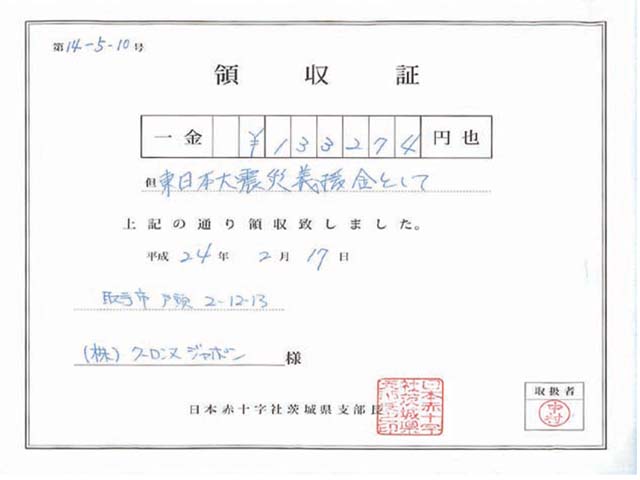 第14-5-10号
領収証
一金 ¥133274 円也
但 東日本大震災義援金として
上記の通り領収致しました。
平成 24年 2月 17日
取手市 戸頭 2-12-13
(株) クーロンヌジャポン 様
日本赤十字社茨城県支部長
日本赤十字
社茨城県
取扱者
中村